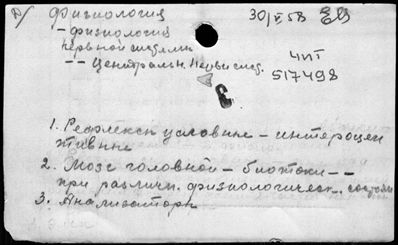 физиология 30/V 58
– физиология
нервной системы
– – Центральн. Нервн. сист.
ЧИТ
517498
1. Рефлексы условные – интероцеп
тивные
2. Мозг головной – биотоки – –
при различн. физиологическ. состоян
3. Анализаторы